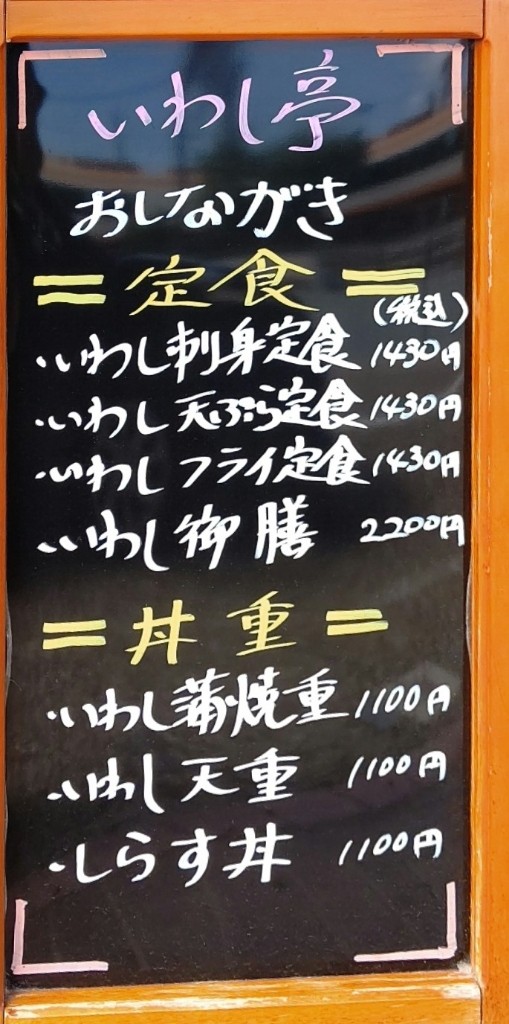 いわし亭
おしながき
= 定食 =
(税込)
・いわし刺身定食 1430円
・いわし天ぷら定食 1430円
・いわしフライ定食 1430円
・いわし御膳 2200円
= 丼重 =
・いわし蒲焼重 1100円
・いわし天重 1100円
・しらす丼 1100円